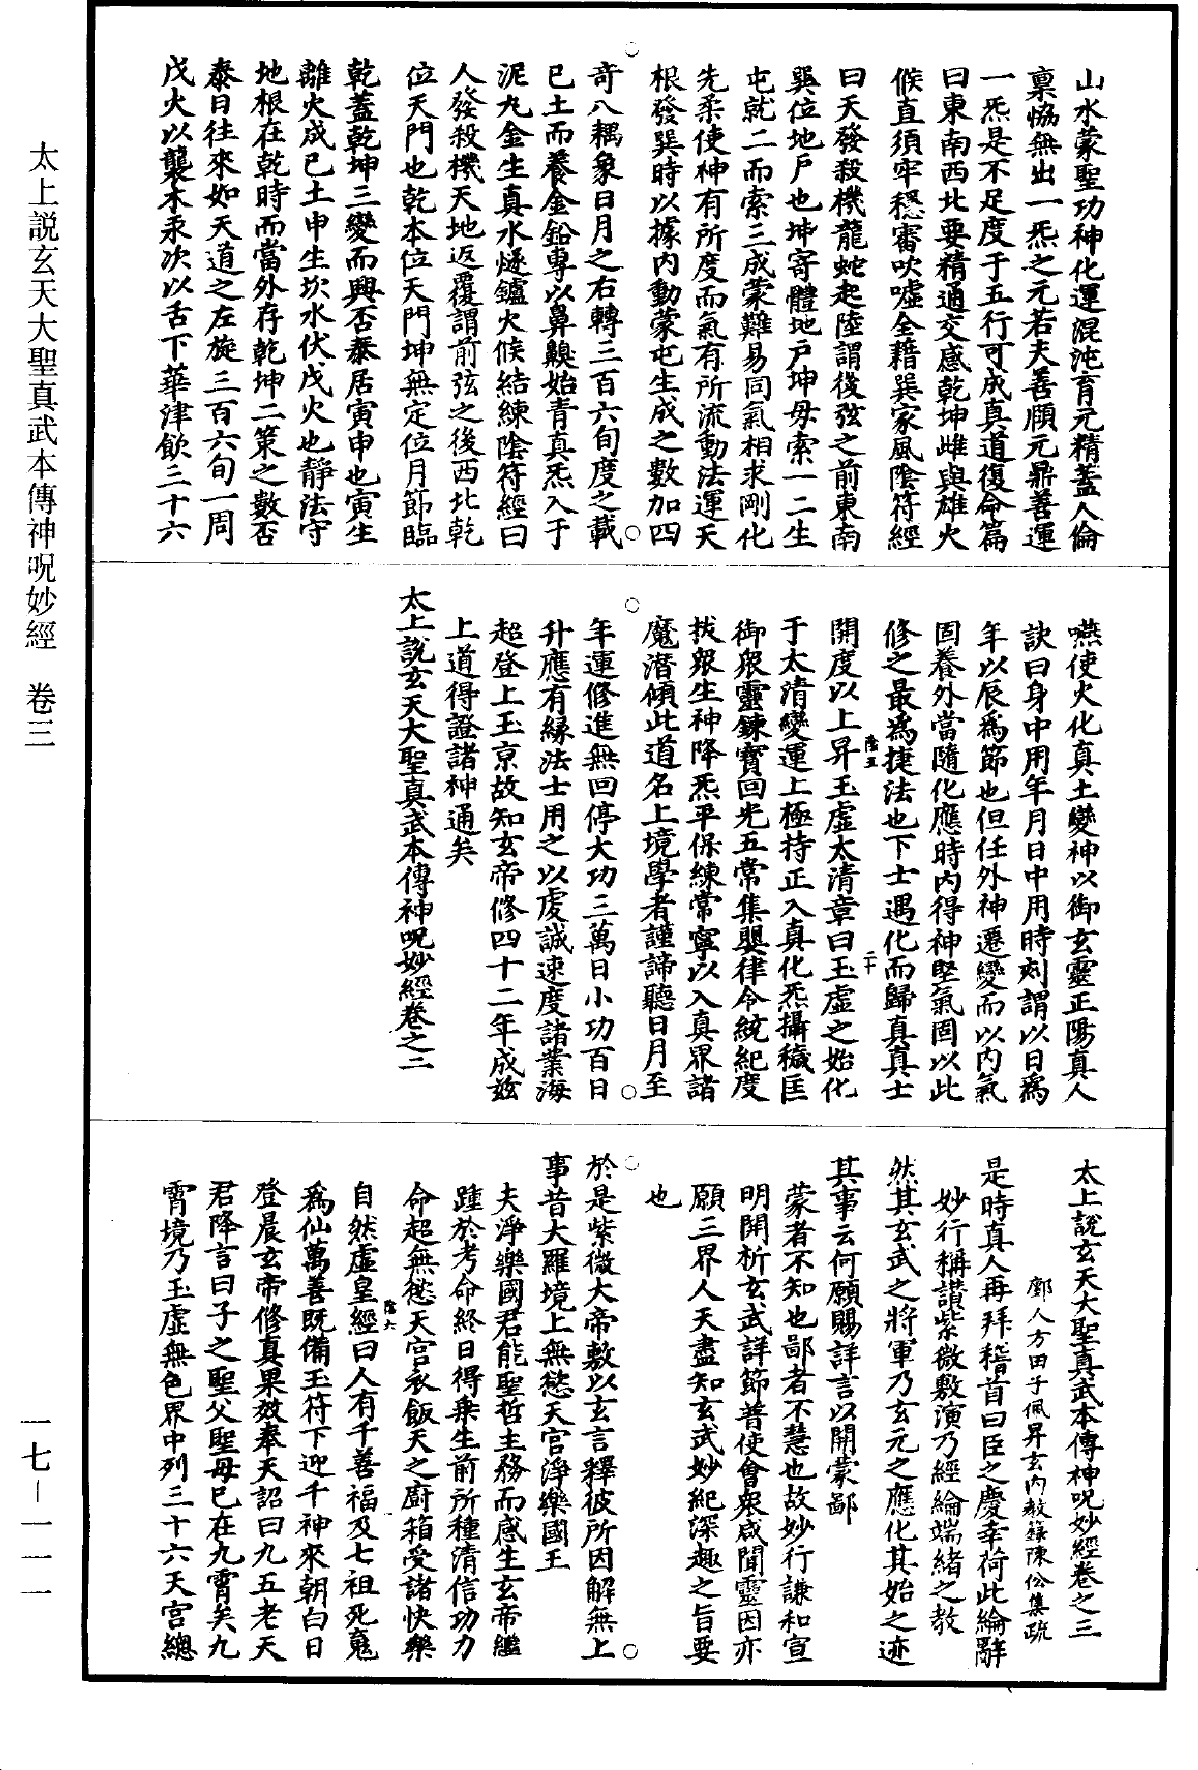 山水蒙聖功神化運混沌育元精蓋人倫
稟恊無出一炁之元若夫善願元鼎善運
一炁是不足度于五行可成真道復命篇
曰東南西北要精通交感乾坤雌與雄火
候直須牢穩審吹噓全藉巽家風陰符經
曰天發殺機龍蛇起陸謂後弦之前東南
巽位地戶也坤寄體地戶坤母索一二生
屯就二而索三成蒙難易同氣相求剛化
先柔使神有所度而氣有所流動法運天
根發巽時以據內動蒙屯生成之數加四
奇八耦象日月之右轉三百六旬度之載
巳土而養金鉛專以鼻齅始青真炁入于
泥丸金生真水燧鑪火候結練陰符經曰
人發殺機天地返覆謂前弦之後西北乾
位天門也乾本位天門坤無定位月節臨
乾蓋乾坤三變而興否泰居寅申也寅生
離火成巳土申生坎水伏戊火也靜法守
地根在乾時而當外存乾坤二策之數否
泰日往來如天道之左旋三百六旬一周
戊火以襲木汞次以舌下華津飲三十六
嚥使火化真土變神以御玄靈正陽真人
訣曰身中用年月日中用時刻謂以日為
年以辰為節也但任外神遷變而以內氣
固養外當隨化應時內得神堅氣固以此
修之最為捷法也下士遇化而歸真真士
開度以上昇玉虛太清章曰玉虛之始化
陰五
二十
于太清變運上極持正入真化炁攝穢匡
御眾靈鍊寶回光五常集嬰律令統紀度
拔眾生神降炁平保練常寧以入真界諸
魔潛傾此道名上境學者謹諦聽日月至
年運修進無回停大功三萬日小功百日
升應有緣法士用之以虔誠速度諸業海
超登上玉京故知玄帝修四十二年成玆
上道得證諸神通矣
太上說玄天大聖真武本傳神呪妙經卷之二
太上說玄天大聖真武本傳神呪妙經卷之三
鄮人方田子佩昇玄內教籙陳伀集疏
是時真人再拜稽首曰臣之慶幸荷此綸辭
妙行稱讚紫微敷演乃經綸端緒之教
然其玄武之將軍乃玄元之應化其始之迹
其事云何願賜詳言以開蒙鄙
蒙者不知也鄙者不慧也故妙行謙和宣
明開析玄武詳節普使會眾咸聞靈因亦
願三界人天盡知玄武妙紀深趣之旨要
也
於是紫微大帝敷以玄言釋彼所因解無上
事昔大羅境上無慾天宮淨樂國王
夫淨樂國君能聖哲主務而感生玄帝繼
踵於考命終日得乘生前所種清信功力
命超無慾天宮衣飯天之廚箱受諸快樂
自然虛皇經曰人有千善福及七祖死竟
陰六
為仙萬善既備玉符下迎千神來朝白日
登晨玄帝修真果效奉天詔曰九五老天
君降言曰子之聖父聖母已在九霄矣九
霄境乃玉虛無色界中列三十六天宮總
太上説玄天大聖真武本傳神呪妙經　卷三
一七－一一一